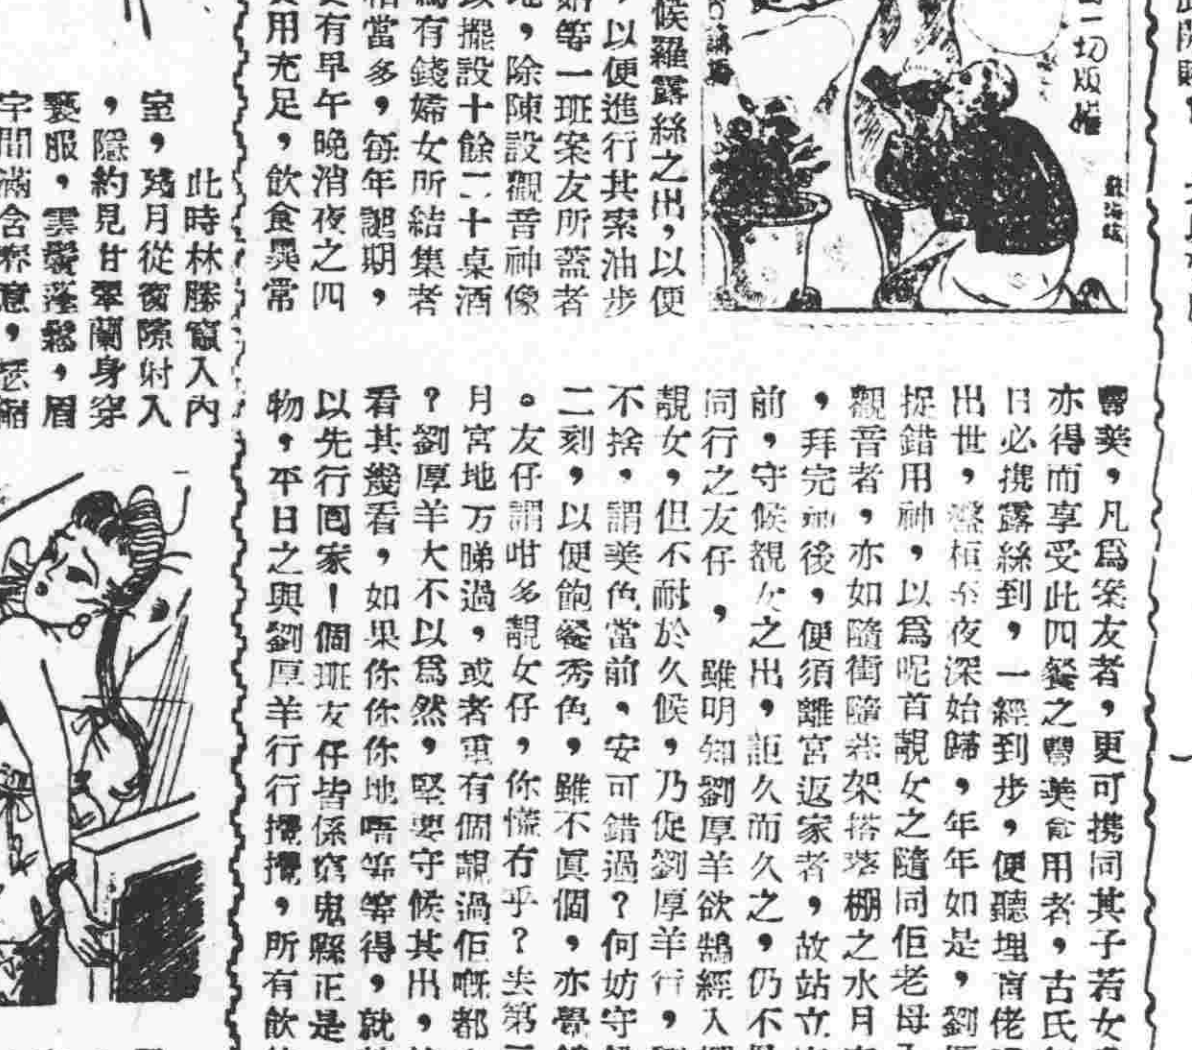 一切煩惱
候羅露絲之出，以便
，以便進行其索油步
等一班案友所蓋者
，除陳設觀音神像
擺設十餘二十桌酒
有錢婦女所結集者
相當多，每年誕期，
有早午晚消夜之四
用充足，飲食異常
豐美，凡爲案友者，更可携同其子若女
亦得而享受此四餐之豐美食用者，古氏
日必携露絲到，一經到步，便聽埋盲佬
出世，盤桓至夜深始歸，年年如是，劉
捉錯用神，以爲呢首靚女之隨同佢老母
觀音者，亦如隨街隨巷架搭棚之水月
，拜完神後，便須離宮返家者，故站立
前，守候靚女之出，詎久而久之，仍不
同行之友仔，雖明知劉厚羊欲鵠經入
靚女，但不耐於久候，乃促劉厚羊行，
不捨，謂美色當前，安可錯過？何妨守
二刻，以便飽餐秀色，雖不眞個，亦覺
。友仔謂咁多靚女仔，你慌冇乎？去第
月宮地万睇過，或者重有個靚過佢嘅都
？劉厚羊大不以爲然，堅要守候其出，
看其幾看，如果你你你地唔等等得，就
以先行囘家！個班友仔皆係窮鬼縣正是
物，平日之與劉厚羊行行攪攪，所有飲
此時林勝竄入內
室，殘月從窗隙射入
，隱約見甘翠蘭身穿
褻服，雲鬢蓬鬆，眉
宇間滿含春意，